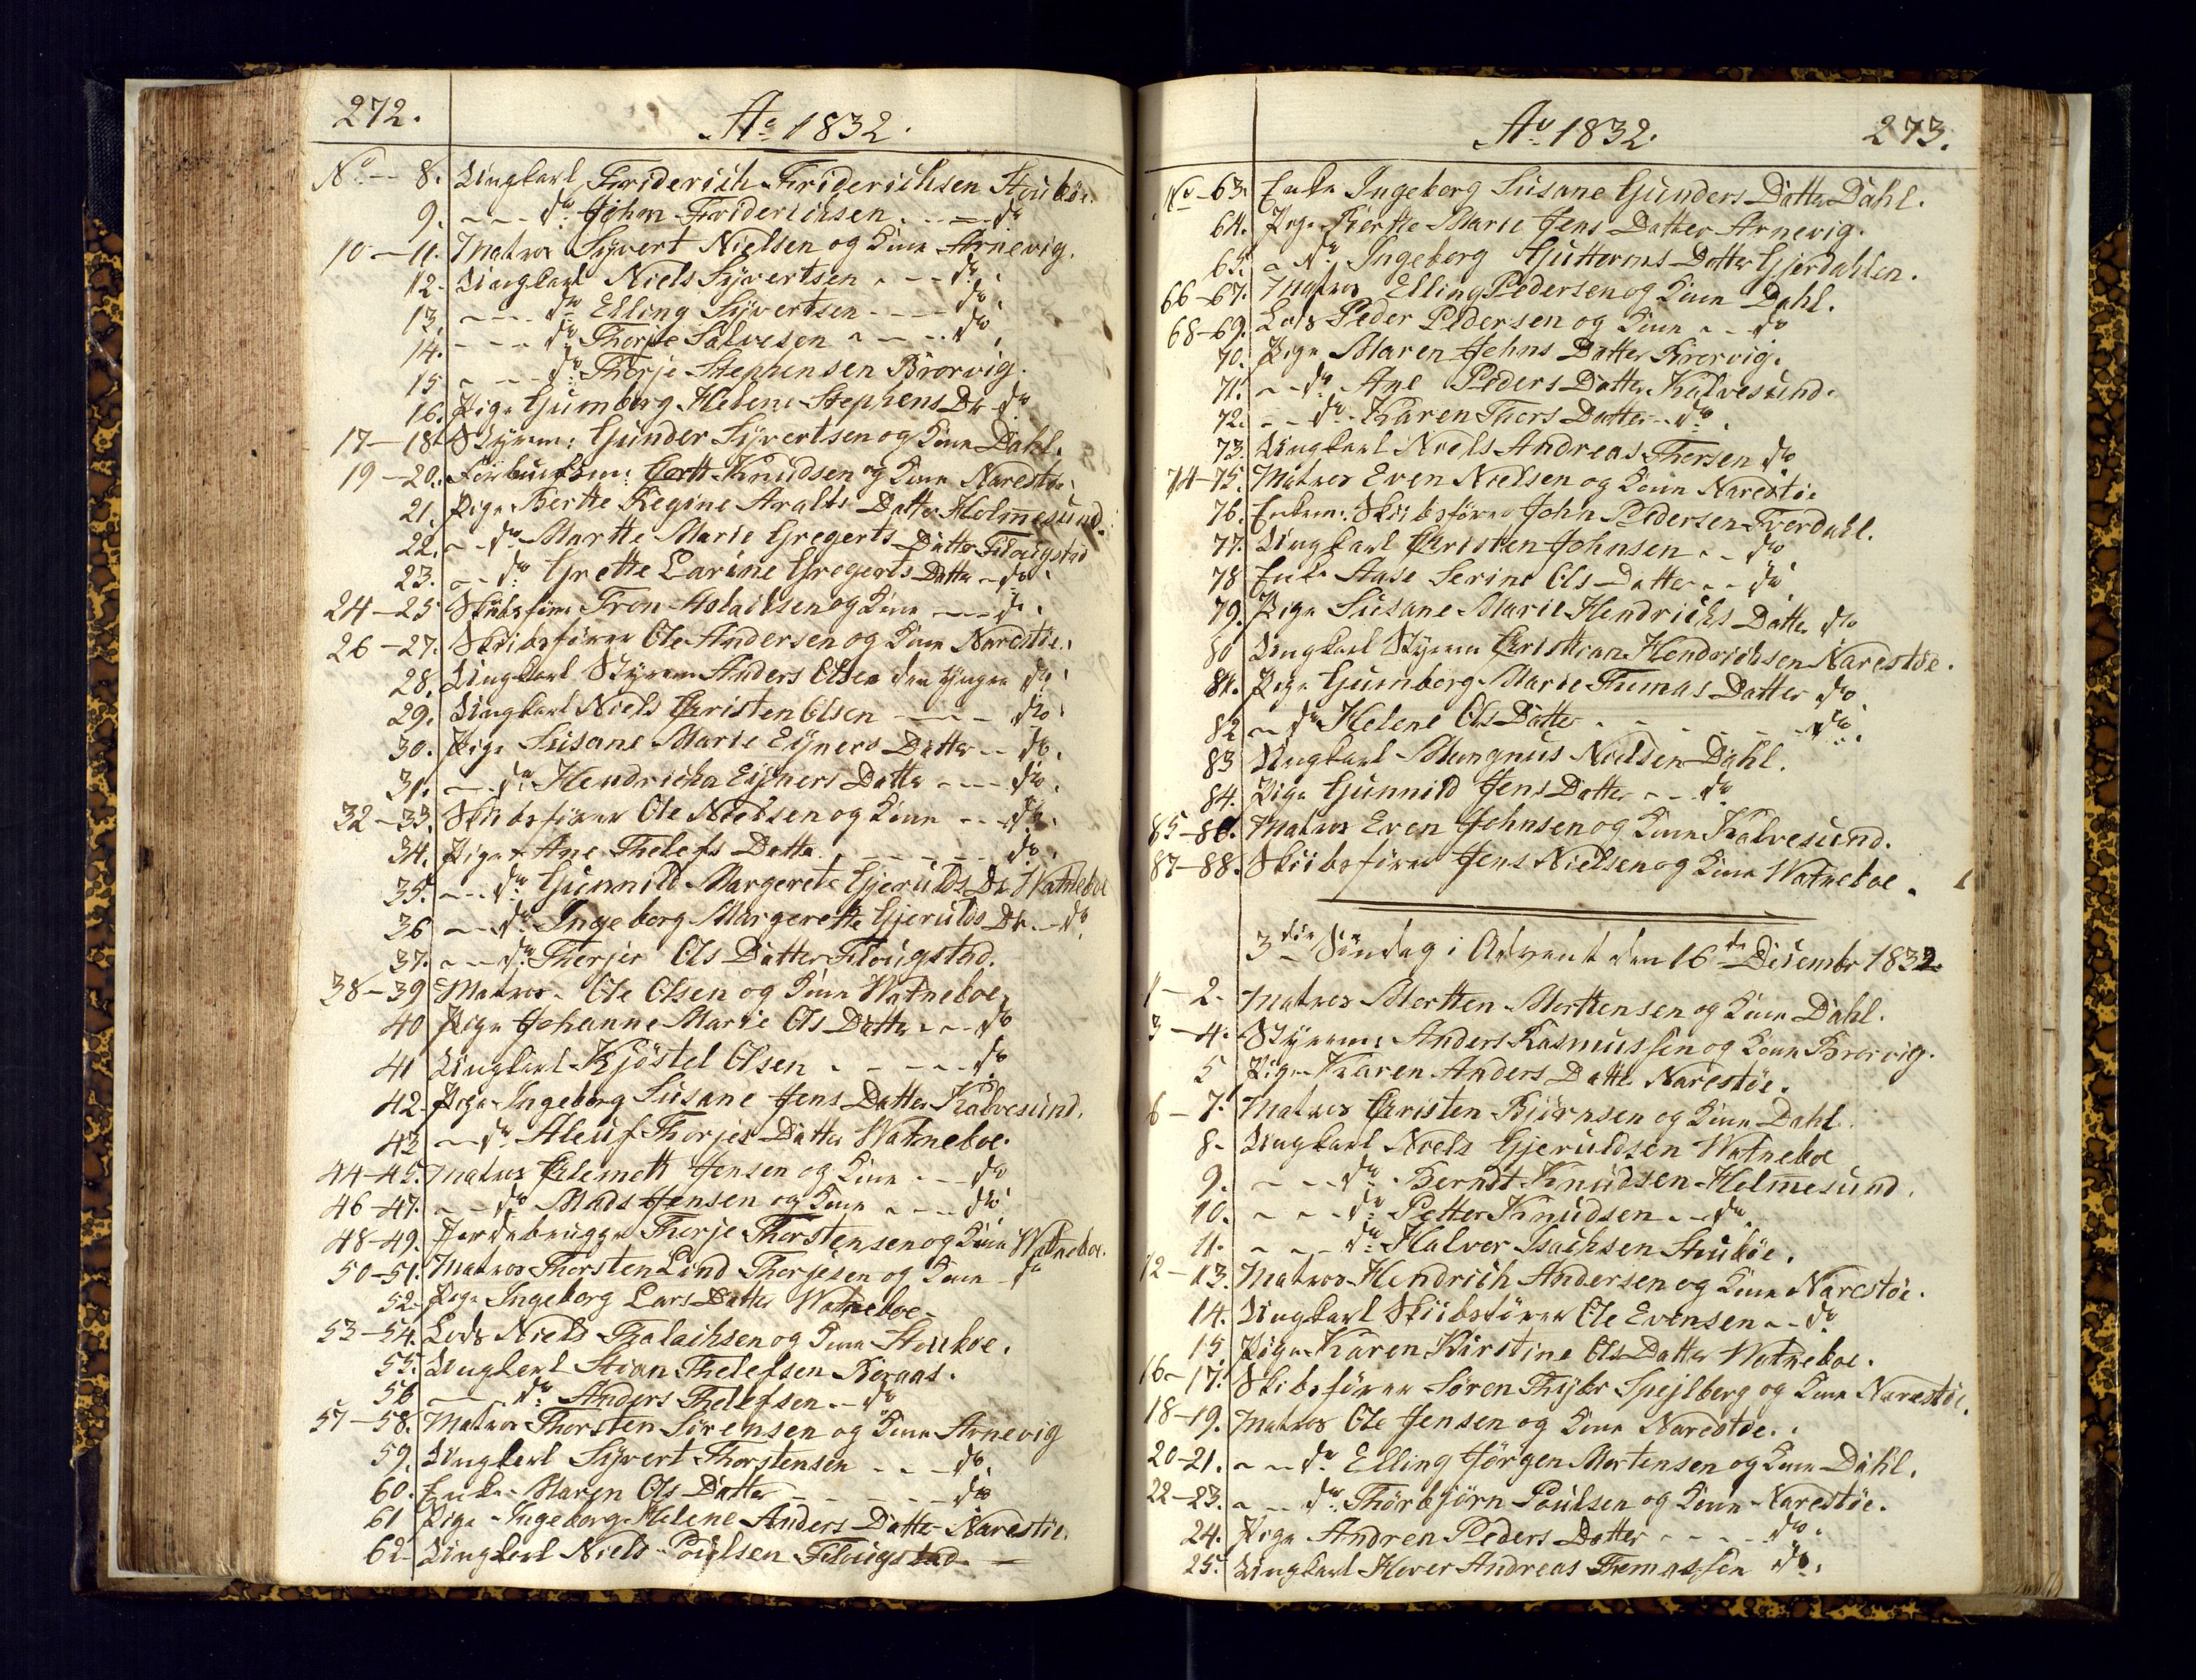 272.
Ao 1832.
No -- 8. Ungkarl Friderich Friderichsen Stuböe.
9. - - - do John Friderichsen - - - do
10-11. Matros Syvert Nielsen og Kone Arnevig.
12. Ungkarl Niels Syvertsen - - - do.
13. - - - do Elling Syvertsen - - - do.
14. - - - do Thorje Salvesen - - - do.
15. - - - do Thorje Stephensen Brorvig.
16. Pige Gumborg Helene Stephens Dr do
17-18. Styrm: Gunder Syvertsen og Kone Dahl.
19-20. Cortt Knudsen og Kone Narestöe.
21. Pige Berthe Regine Aralts Datter Holmesund.
22. - - do Marthe Marie Gregerts Datter Flougstad
23. - - do Grette Larine Gregerts Datter - do.
24-25 Skibsförer Tron Isachsen og Kone - - - do.
26-27. Skibsförer Ole Andersen og Kone Narestöe.
28. Ungkarl Styrm Anders Olsen den Yngre do.
29. Ungkarl Niels Christen Olsen - - - do.
30. Pige Susane Marie Eyners Datter - - do.
31. - - do Hendricha Eyners Datter - - - do.
32-33. Skibsförer Ole Nielsen og Kone - - do.
34. Pige Ane Thelefs Datter - - - - - do.
35. - - do Gunnild Margerete Gjerulds Dr Watneboe
36 - - do Ingeborg Margerethe Gjerulds Dr - do
37. - - do Therjer Ols Datter Flougstad.
38-39 Matros Ole Olsen og Kone Watneboe.
40 Pige Johanne Marie Ols Datter - - do
41 Ungkarl Kjöstel Olsen - - - - - do
42. Pige Ingeborg Susane Jens Datter Kalvesund.
43 - - do Aleuf Thorjes Datter Watneboe.
44-45. Matros Clemett Jensen og Kone - - do
46-47. - - do Mads Jensen og Kone - - - do
48-49. Jordebruger Therje Thorstensen og Kone Watneboe.
50-51. Matros Thorsten Lind Thorjesen og Kone - do
52. Pige Ingeborg Lars Datter Watneboe.
53-54. Lods Niels Thalachsen og Kone Stouboe.
55. Ungkarl Stian Thelefsen Børaas.
56 - - - do Anders Thelefsen - - do
57-58. Matros Thorsten Sörensen og Kone Arnevig
59. Ungkarl Syvert Thorstensen - - - do.
60. Enke Maren Ols Datter - - - - - do
61 Pige Ingeborg Helene Anders Datter Narestöe.
62. Ungkarl Niels Poulsen Flougstad
Ao 1832. 273.
No -63. Enke Ingeborg Susane Gunders Datter Dahl.
64. Pige Bierthe Marie Jens Datter Arnevig.
65. - do Ingeborg Guttorms Datter Gjerdahlen.
66-67. Matros Elling Pedersen og Kone Dahl.
68-69. Lods Peder Pedersen og Kone - - do
70. Pige Maren Johns Datter Brorvig.
71. - - do Ane Peders Datter Kalvesund.
72. - - do Karen Thors Datter - - do.
73. Ungkarl Niels Andreas Thorsen do
74-75. Matros Even Nielsen og Kone Narestöe
76. Enkem: Skibsförer John Pedersen Tverdahl.
77. Ungkarl Christen Johnsen - - do
78 Enke Aase Serine Ols Datter - - do
79. Pige Susane Marie Hendrichs Datter do
80 Ungkarl Styrm Christian Hendrichsen Narestöe.
81. Pige Gumborg Marie Tumas Datter do.
82 - do Helene Ols Datter - - - - do.
83 Ungkarl Mangnus Nielsen Dahl.
84. Pige Gunnild Jens Datter - - do
85-86. Matros Even Johnsen og Kone Kalvesund.
87-88. Skibsförer Jens Nielsen og Kone Watneboe.
3die Söndag i Advent den 16de Decembr 1832.
1-2. Matros Mortten Morttensen og Kone Dahl.
3-4. Styrm: Anders Rasmussen og Kone Brorvig.
5 Pige Karen Anders Datter Narestöe.
6-7. Matros Christen Biörnsen og Kone Dahl.
8. Ungkarl Niels Gjeruldsen Watneboe
9. - - - do Berndt Knudsen Holmesund.
10. - - - do Petter Knudsen - - do.
11. - - - do Halvor Isachsen Stuböe.
12-13. Matros Hendrich Andersen og Kone Narestöe.
14. Ungkarl Skibsförer Ole Evensen - - do
15 Pige Karen Kirstine Ols Datter Watneboe.
16-17. Skibsförer Sören Thybr Spejlberg og Kone Narestöe.
18-19. Matros Ole Jensen og Kone Narestöe.
20-21. - - do Elling Jörgen Mortensen og Kone Dahl.
22-23. - - do Thorbjörn Poulsen og Kone Narestöe.
24. Pige Andren Peders Datter - - - - do.
25. Ungkarl Hover Andreas Thomassen do.